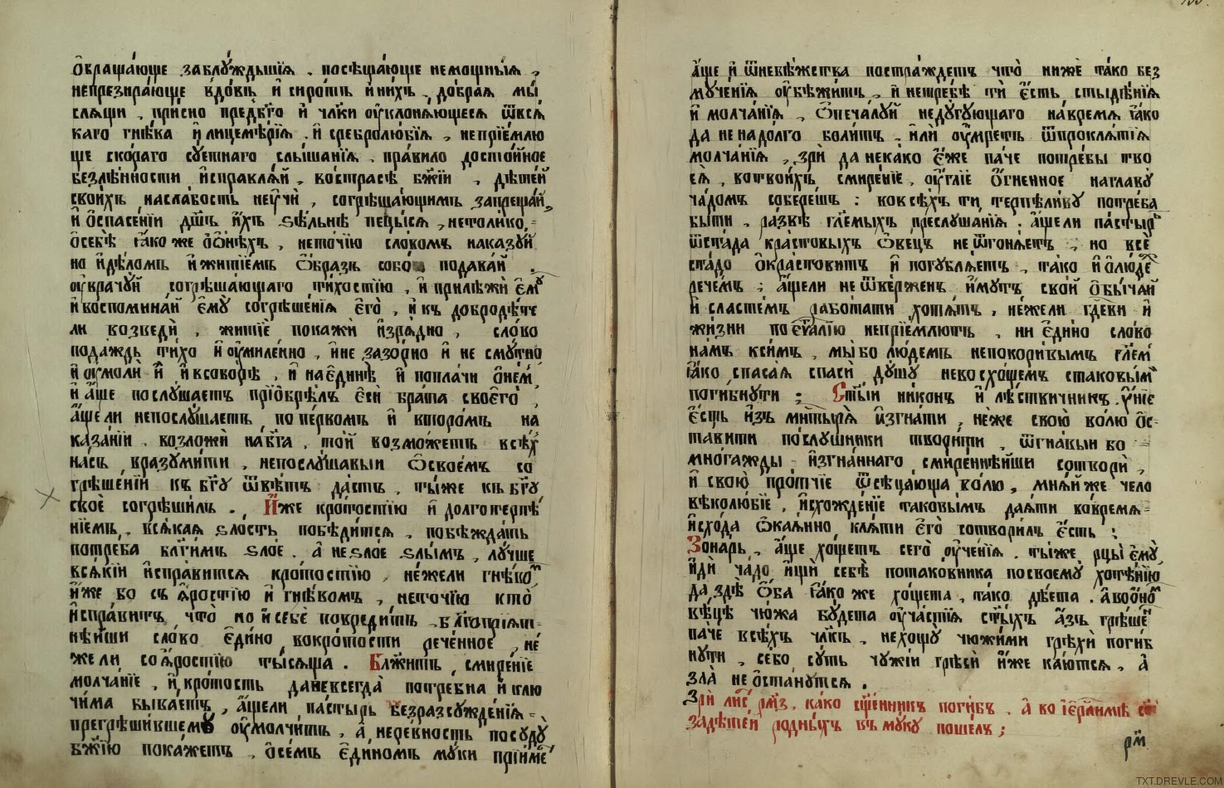 ѻбращающе заблуждьшїя , посѣщающе немощныя ,
непрезирающе вдовъ и сиротъ инихъ , добрая мы
слящи , присно предъ бг҃о и члк҃и оуклоняющеся ѿвся
каго гнѣва и лицемѣрїя . и сребролюбїя , непрїемлю
ще скораго суетнаго слышанїя , правило достойное
безлѣнности исправляй , вострасѣ бж҃їи , дѣтей
своихъ наслабость неучи , согрѣшающимъ запрещай ,
и оспасенїи дш҃ъ ихъ ѕѣлнѣ пецыся , нетолико
ѻсебѣ ꙗкоже ѻонѣхъ , неточїю словомъ наказуй
но идѣломъ ижитїемъ ѻбразъ собою подавай .
оуврачуй согрѣшающаго тихостїю , и прилѣжи ємꙋ
и воспоминай ємꙋ согрѣшенїя єгѻ , и къ добродѣте
ли возведи , житїе покажи изрядно , слово
подаждь тихо и оумиленно , ине зазорно и не смутно
и оумоли и и всоборѣ , и наєдинѣ и поплачи ѻнемъ
и аще послушаетъ прїобрѣлъ єси брата своего ,
ащели непослушаетъ , попервомъ и второмъ на
казанїи . возложи набг҃а , той возможетъ всѣх
насъ вразумити , непослушавыи ѻсвоемъ со
грѣшенїи къ бг҃у ѿвѣтъ дастъ , тыже къ бг҃у
свое согрѣшилъ . Иже кротостїю и долготерпѣ
нїемъ , всякая ѕлость побѣдится , побѣждать
потреба благимъ ѕлое . а неѕлое ѕлымъ , лучше
всякїи исправится кротостїю , нежели гнѣвомъ
иже бо съ яростїю и гнѣвомъ , неточїю кто
исправитъ , что но и себе повредитъ . благопрїят
нѣйши слово єдино , вокротости реченное , не
жели сояростїю тысяща . Блж҃итъ , смиренїе
молчанїе , и кротость даневсегда потребна и лю
чима бываетъ , ащели пастырь безразсужденїя
прегрѣшившемꙋ оумолчитъ , а , неревность посуду
бж҃їю покажетъ , ѻсемъ єдиномъ муки прїиме
аще и ѿневѣжества постраждетъ что ниже тако без
мученїя оубѣжитъ , и нетребѣ ти єсть стыдѣнїя
и молчанїя , ѻпечалуй недугующаго навремя ꙗко
да не надолго болитъ . или оумретъ ѿпроклятїя
молчанїя , зри да некако єже паче потребы тво
ея , котвоихъ смиренїе , оуглїе огненное наглаву
чадомъ соберешъ : ковсѣхъ ти терпеливꙋ потреба
быти , развѣ гл҃емыхъ преслушанїя . ащели пастырь
ѿстада крастовыхъ ѻвецъ не ѿгоняетъ , но все
стадо ѻкрастовитъ и погубляетъ , тако и ѻлюде
речемъ ; ащели не ѿверженъ имутъ свой ѻбычай
и сластемъ работати хотятъ , нежели гдеви и
жизни поєѵалїю непрїемлютъ , ни єдино слово
намъ книмъ , мы бо людемъ непокоривымъ гл҃ем
ꙗко спасая спаси душу невосхощемъ стаковым
погибнути ; Ст҃ыи никон и лѣствичникъ . оуне
єсть изъ мн҃тыря изгнати , неже свою волю ѻс
тавити послушники творити , ѿгнавыи бо
многажды изгнаннаго , смиреннѣйши сотвори ,
и свою протчїе ѿсѣцающа волю , мняйже чело
вѣколюбїе , исхожденїе таковымъ даяти вовремя
исхода ѻкаянно , кляти єго сотворилъ єсть ;
Зонаръ , аще хощетъ сего оученїя . тыже , рцы ємꙋ
иди чадо ищи себѣ потаковника посвоему хотѣнїю
да здѣ ѻба ꙗкоже хощета , тако дѣета . авоѻно
вѣцѣ чюжа будета оучастїя ст҃ыхъ , азъ грѣшѣ
паче всѣхъ члкъ , нехощу чюжими грѣхи погиб
нути , себо суть чужїи грѣси иже каются , а
зла не останутся .
Зри лис҃ рмз . како сщ҃енникъ погибъ . а во іер҃лимѣ
задѣтей родныхъ въ муку пошелъ ;
рм
TXT.DREVLE.COM